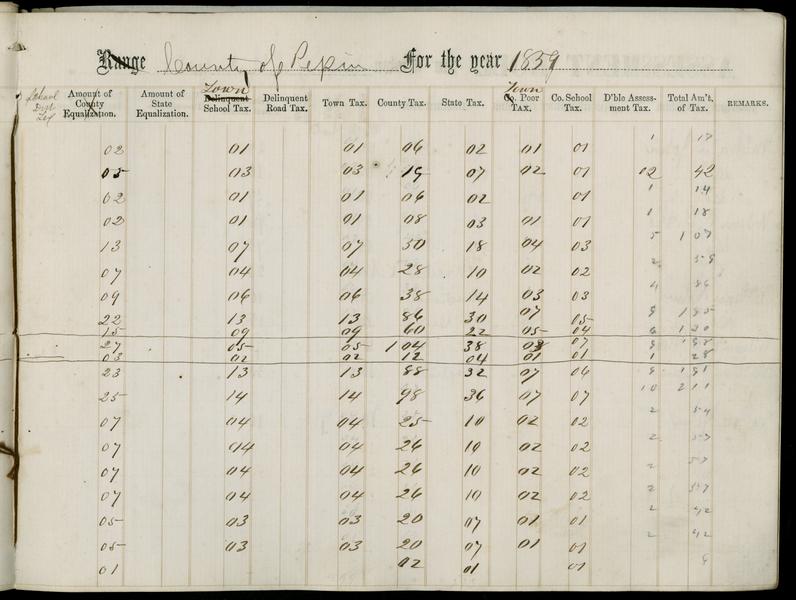 Range County of Pepin For the year 1859
School Dist Tax Amount of County Equalization. Amount of State Equalization. Town Delinquent School Tax. Delinquent Road Tax. Town Tax. County Tax. State Tax. Town Co. Poor Tax. Co. School Tax. D'ble Assessment Tax. Total Am't. of Tax. REMARKS.
02 01 01 06 02 01 01 1 17
05 03 03 19 07 02 01 02 42
02 01 01 06 02 01 1 14
02 01 01 08 03 01 01 1 18
13 07 07 50 18 04 03 5 1 07
07 04 04 28 10 02 02 2 59
09 06 06 38 14 03 03 4 86
22 13 13 86 30 07 05 8 1 85
15 09 09 60 22 05 04 6 1 30
27 05 05 1 04 38 08 07
03 02 02 12 04 01 01 1 28
23 13 13 88 32 07 06 8 1 91
25 14 14 98 36 07 07 10 2 11
07 04 04 25 10 02 02 2 54
07 04 04 26 10 02 02 2 57
07 04 04 26 10 02 02 2 57
07 04 04 26 10 02 02 2 57
05 03 03 20 07 01 01 2 42
05 03 03 20 07 01 01 2 42
01 02 01 01